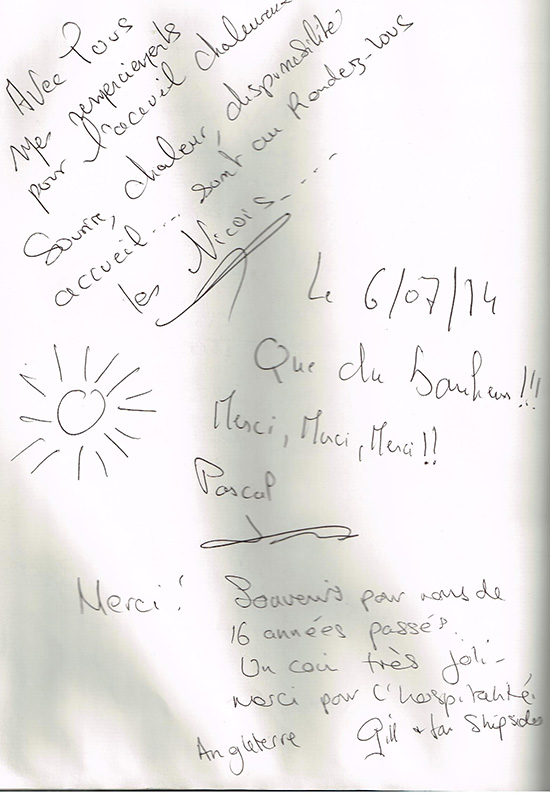 Avec Tous
mes remerciements
pour l'acceuil chaleureux
Sourire, chaleur, disponibilité
accueil.... sont au Rendez-vous
les Nicois....
Le 6/07/14
Que du Bonheur!!!
Merci, Merci, Merci!!
Pascal
Merci! Souvenirs pour nous de
16 années passés.
Un coin très joli-
merci pour l'hospitalité.
Angleterre Gill +